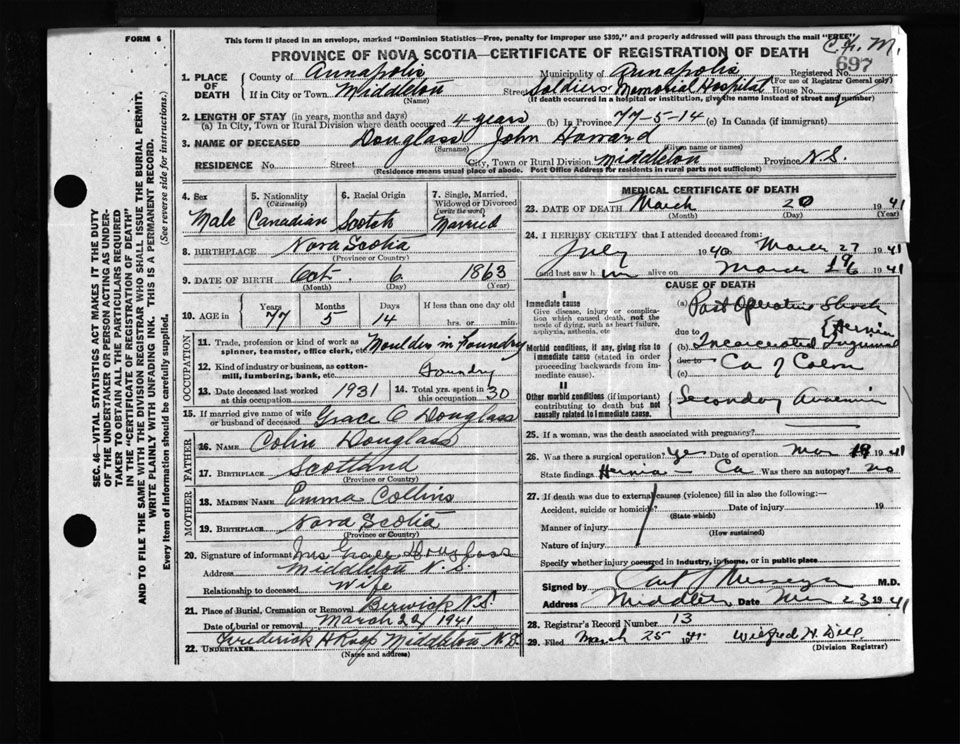 FORM 6
This form if placed in an envelope, marked "Dominion Statistics—Free, penalty for improper use $300," and properly addressed will pass through the mail "FREE"
PROVINCE OF NOVA SCOTIA—CERTIFICATE OF REGISTRATION OF DEATH
697
1. PLACE OF DEATH
County of Annapolis Municipality of Annapolis Registered No.
(For use of Registrar General only)
If in City or Town Middleton Street Soldiers Memorial Hospital House No.
(Name) (If death occurred in a hospital or institution, give the name instead of street and number)
2. LENGTH OF STAY (in years, months and days)
(a) In City, Town or Rural Division where death occurred 4 years (b) In Province 77-5-14 (c) In Canada (if immigrant)
3. NAME OF DECEASED Douglass John Howard
(Surname) (Given name or names)
RESIDENCE No. Street City, Town or Rural Division Middleton Province N.S.
(Residence means usual place of abode. Post Office Address for residents in rural parts not sufficient)
4. Sex Male
5. Nationality (Citizenship) Canadian
6. Racial Origin Scotch
7. Single, Married, Widowed or Divorced (write the word) Married
8. BIRTHPLACE Nova Scotia
(Province or Country)
9. DATE OF BIRTH Oct. 6 1863
(Month) (Day) (Year)
10. AGE in Years Months Days If less than one day old
77 5 14 hrs. or min.
OCCUPATION
11. Trade, profession or kind of work as spinner, teamster, office clerk, etc. Moulder in Foundry
12. Kind of industry or business, as cotton-mill, lumbering, bank, etc. Foundry
13. Date deceased last worked at this occupation 1931
14. Total yrs. spent in this occupation 30
15. If married give name of wife or husband of deceased Grace C Douglass
FATHER
16. NAME Colin Douglass
17. BIRTHPLACE Scotland
(Province or Country)
MOTHER
18. MAIDEN NAME Emma Collins
19. BIRTHPLACE Nova Scotia
(Province or Country)
20. Signature of informant Mrs Grace Douglass
Address Middleton N.S.
Relationship to deceased Wife
21. Place of Burial, Cremation or Removal Berwick N.S.
Date of burial or removal March 22 1941
22. UNDERTAKER Frederick H Middleton N.S.
(Name and address)
MEDICAL CERTIFICATE OF DEATH
23. DATE OF DEATH March 20 1941
(Month) (Day) (Year)
24. I HEREBY CERTIFY that I attended deceased from:
July 1940 March 1941
and last saw h im alive on March 19 1941
CAUSE OF DEATH
I
Immediate cause
Give disease, injury or complication which caused death, not the mode of dying, such as heart failure, asphyxia, asthenia, etc
(a) Post Operative Shock
due to
Morbid conditions, if any, giving rise to immediate cause (stated in order proceeding backwards from immediate cause).
(b) Incarcerated Inguinal Hernia
due to
(c) Ca of Colon
II
Other morbid conditions (if important) contributing to death but not causally related to immediate cause.
Secondary Anaemia
25. If a woman, was the death associated with pregnancy?
26. Was there a surgical operation? Yes Date of operation Mar 19 1941
State findings Hernia - Ca Was there an autopsy? no
27. If death was due to external causes (violence) fill in also the following:—
Accident, suicide or homicide? Date of injury 19
(State which)
Manner of injury
(How sustained)
Nature of injury
Specify whether injury occurred in industry, in home, or in public place
Signed by M.D.
Address Middleton Date Mar 23 1941
28. Registrar's Record Number 13
29. Filed March 25 1941 Wilfred H. Dill
(Division Registrar)
SEC. 46—VITAL STATISTICS ACT MAKES IT THE DUTY
OF THE UNDERTAKER OR PERSON ACTING AS UNDERTAKER
TO OBTAIN ALL THE PARTICULARS REQUIRED
IN THE "CERTIFICATE OF REGISTRATION OF DEATH"
AND TO FILE THE SAME WITH THE DIVISION REGISTRAR WHO SHALL ISSUE THE BURIAL PERMIT.
WRITE PLAINLY WITH UNFADING INK. THIS IS A PERMANENT RECORD.
Every item of information should be carefully supplied. (See reverse side for instructions.)